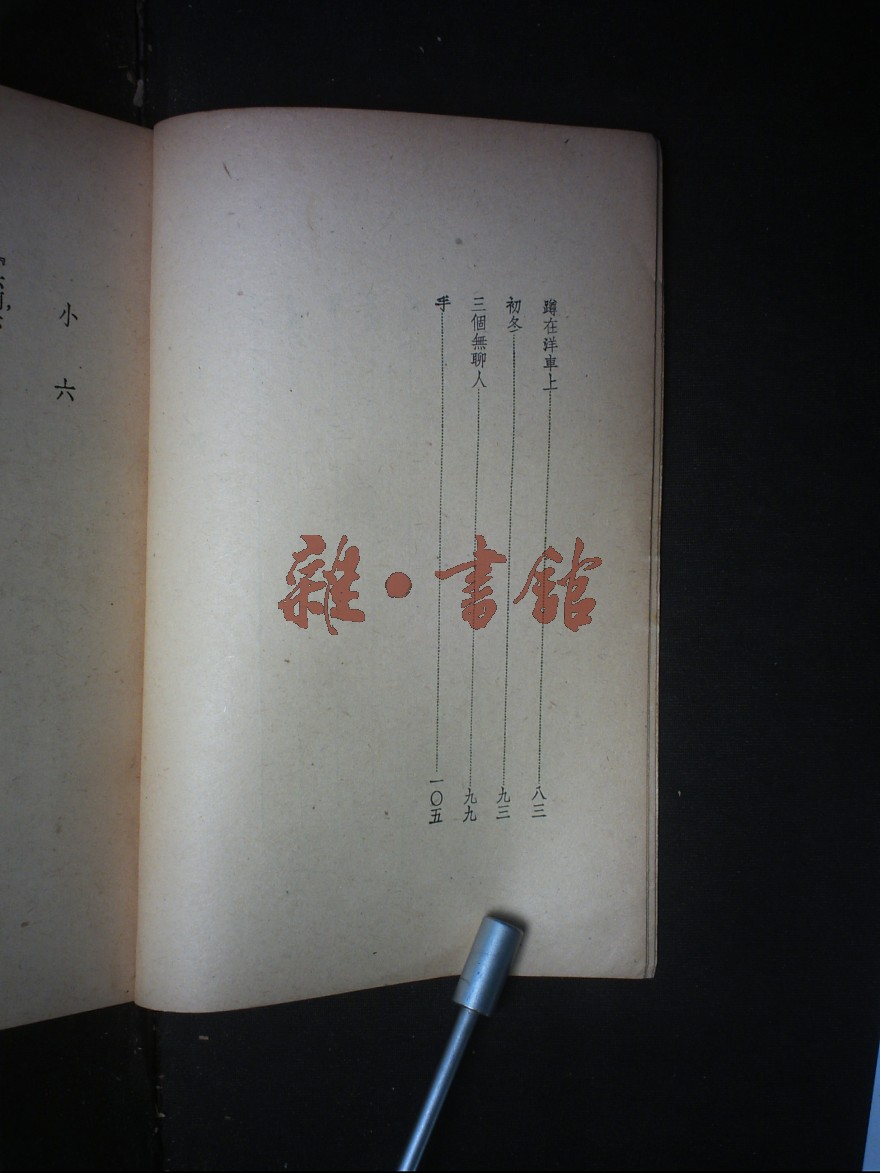 蹲在洋車上……八三
初冬……九三
三個無聊人……九九
手……一〇五
小六
雜·書館